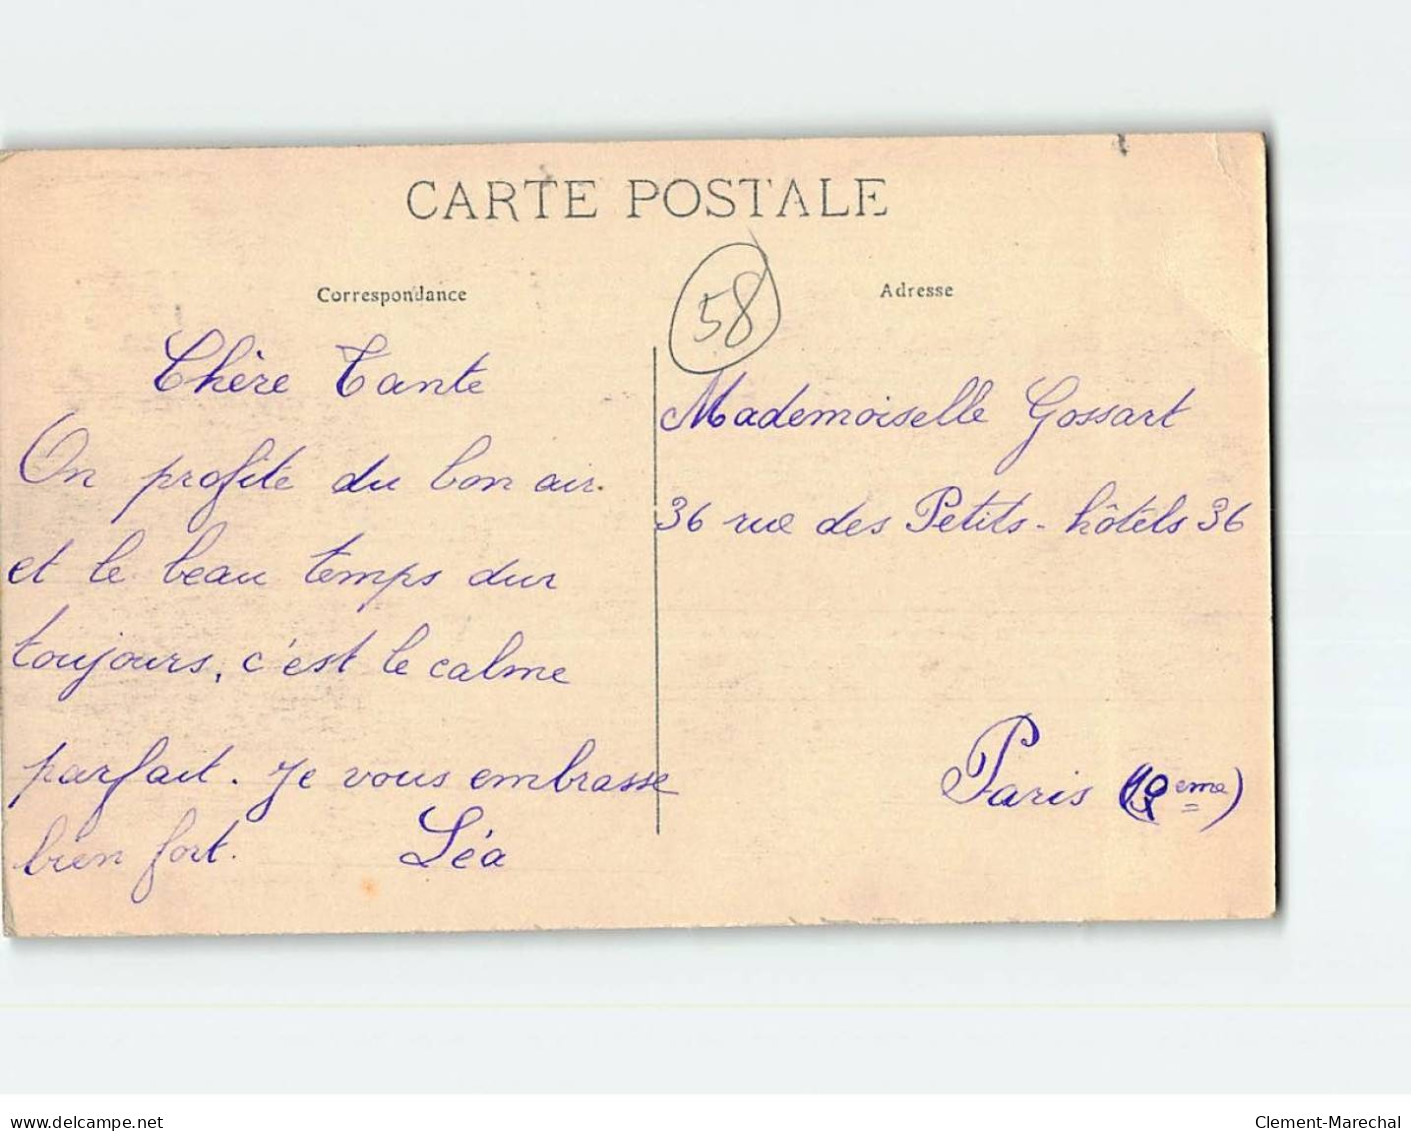 CARTE POSTALE
Correspondance
Adresse
58
Chère Tante
On profite du bon air.
et le beau temps dur
toujours, c'est le calme
parfait. Je vous embrasse
bien fort. Léa
Mademoiselle Gossart
36 rue des Petits-hôtels 36
Paris (eme)
www.delcampe.net
Clement-Marechal